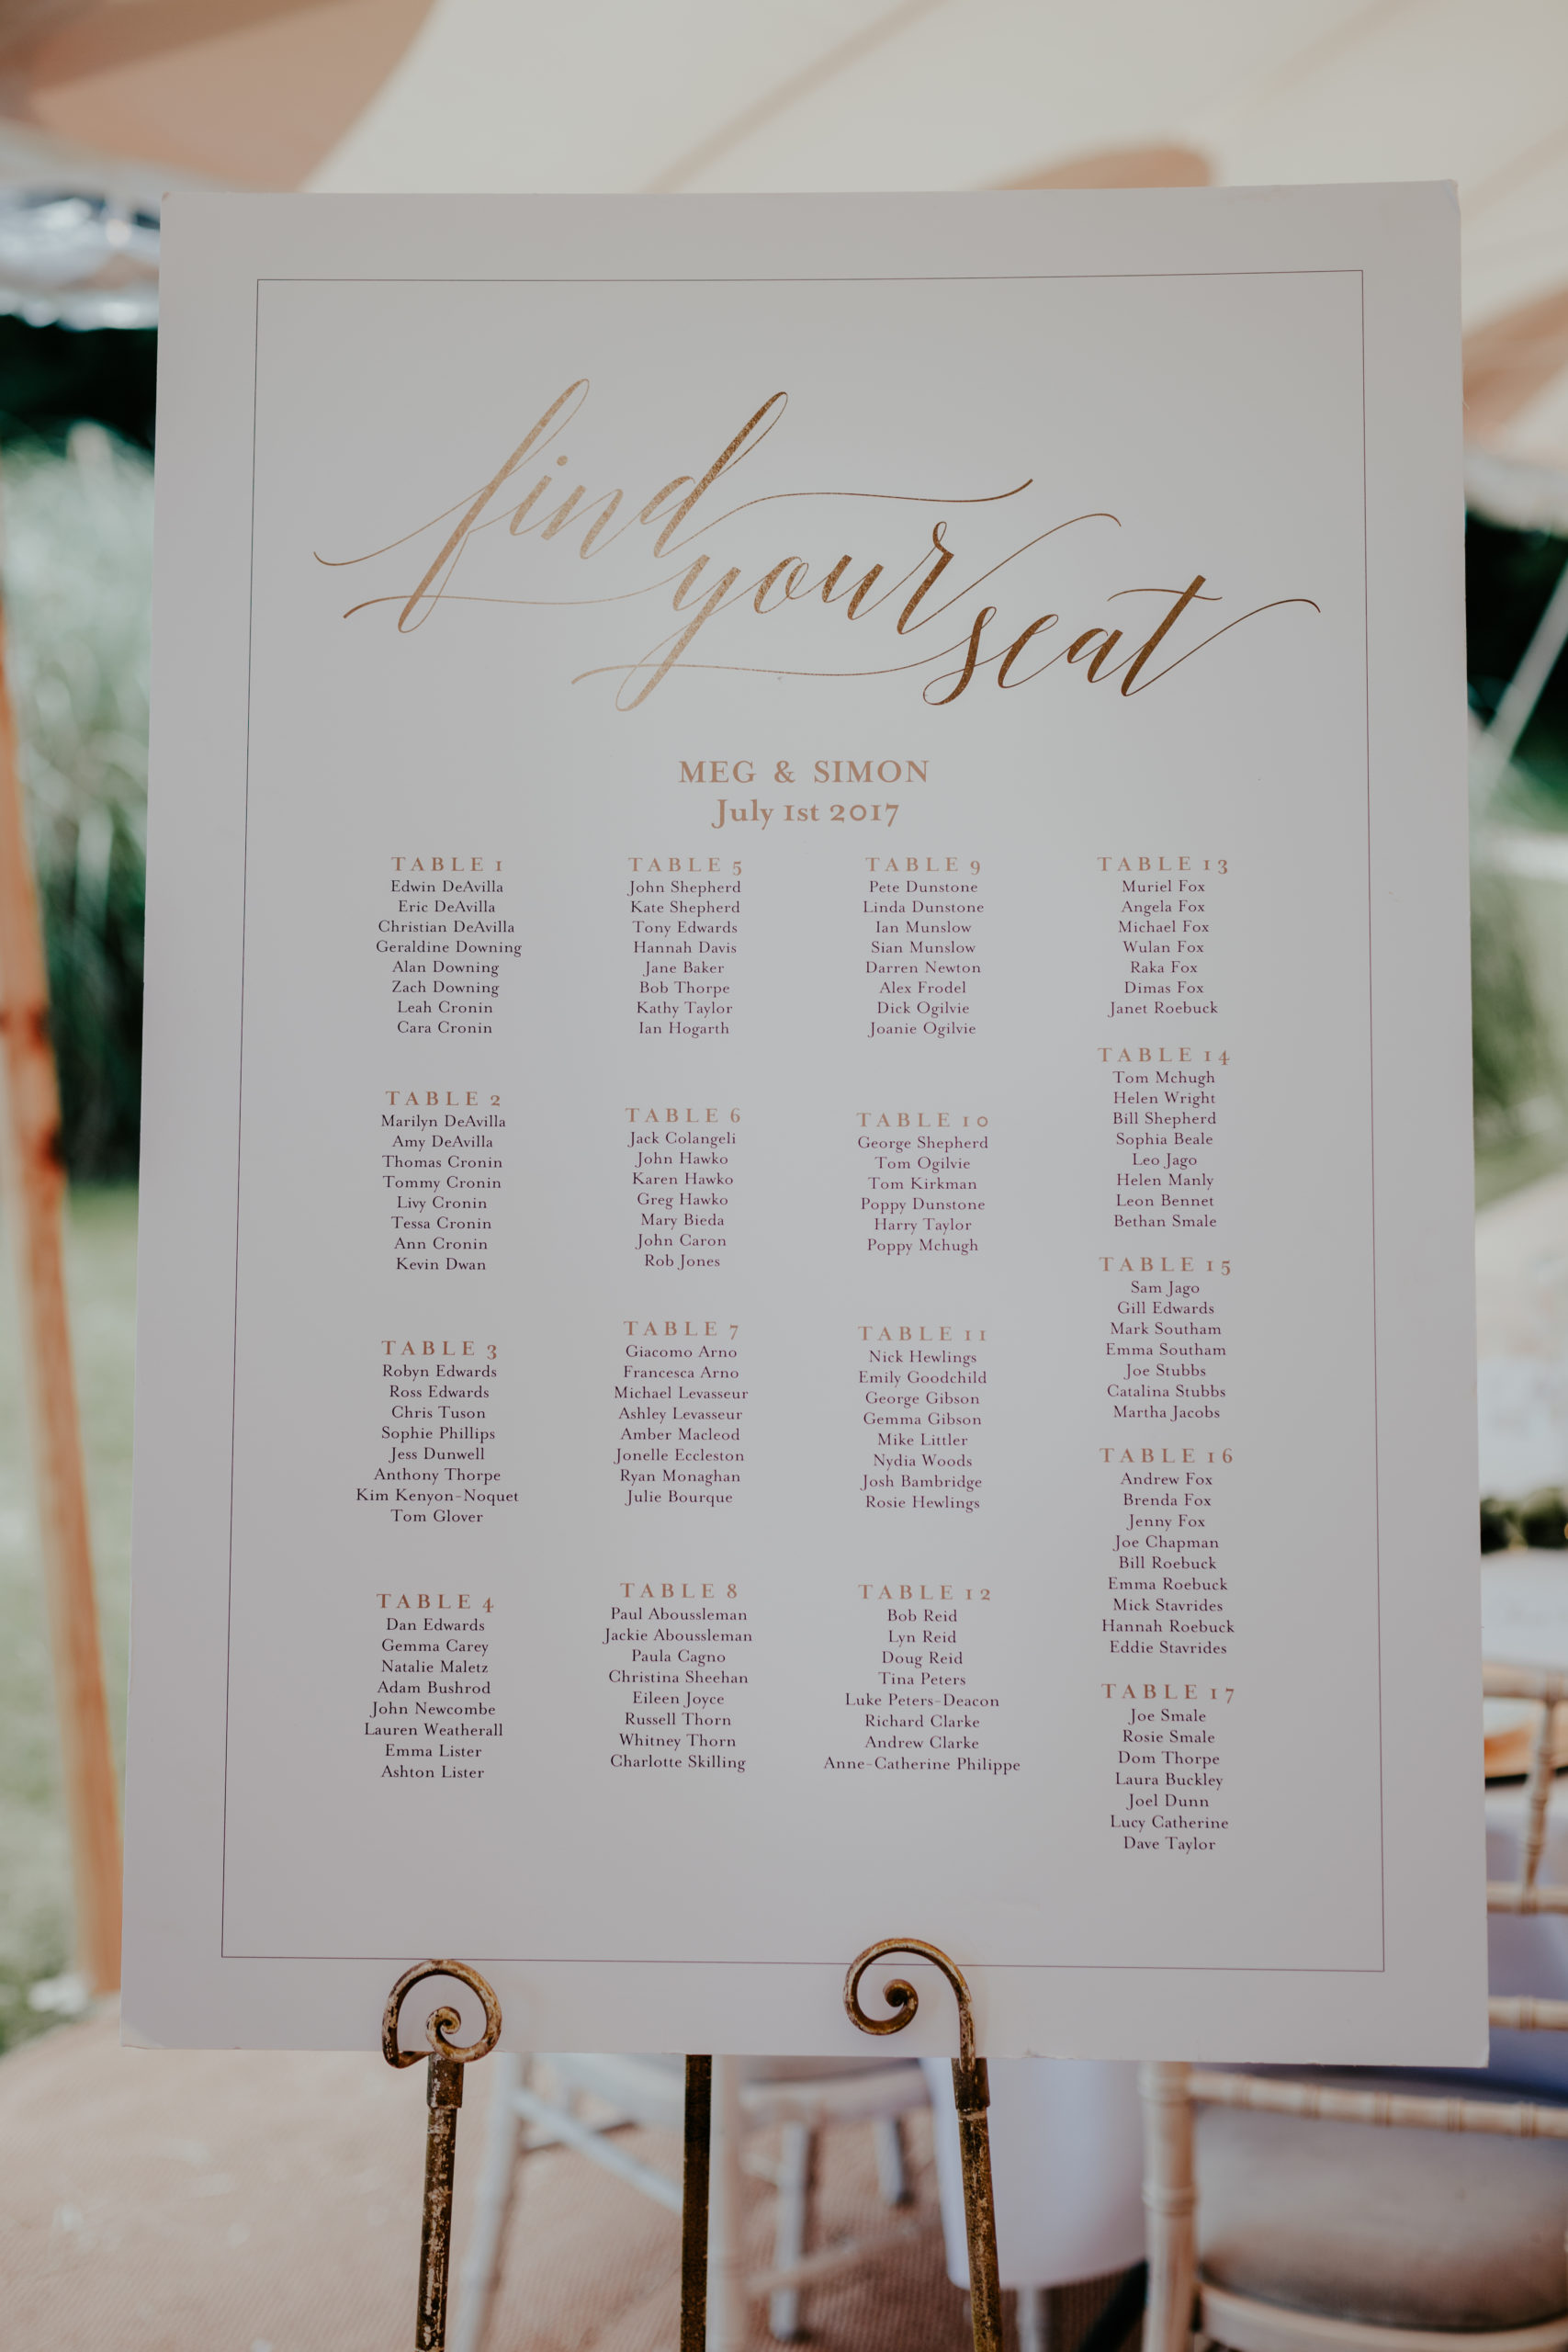 find
your
seat
MEG & SIMON
July 1st 2017
TABLE 1
Edwin DeAvilla
Eric DeAvilla
Christian DeAvilla
Geraldine Downing
Alan Downing
Zach Downing
Leah Cronin
Cara Cronin
TABLE 2
Marilyn DeAvilla
Amy DeAvilla
Thomas Cronin
Tommy Cronin
Livy Cronin
Tessa Cronin
Ann Cronin
Kevin Dwan
TABLE 3
Robyn Edwards
Ross Edwards
Chris Tuson
Sophie Phillips
Jess Dunwell
Anthony Thorpe
Kim Kenyon-Noquet
Tom Glover
TABLE 4
Dan Edwards
Gemma Carey
Natalie Maletz
Adam Bushrod
John Newcombe
Lauren Weatherall
Emma Lister
Ashton Lister
TABLE 5
John Shepherd
Kate Shepherd
Tony Edwards
Hannah Davis
Jane Baker
Bob Thorpe
Kathy Taylor
Ian Hogarth
TABLE 6
Jack Colangeli
John Hawko
Karen Hawko
Greg Hawko
Mary Bieda
John Caron
Rob Jones
TABLE 7
Giacomo Arno
Francesca Arno
Michael Levasseur
Ashley Levasseur
Amber Macleod
Jonelle Eccleston
Ryan Monaghan
Julie Bourque
TABLE 8
Paul Aboussleman
Jackie Aboussleman
Paula Cagno
Christina Sheehan
Eileen Joyce
Russell Thorn
Whitney Thorn
Charlotte Skilling
TABLE 9
Pete Dunstone
Linda Dunstone
Ian Munslow
Sian Munslow
Darren Newton
Alex Frodel
Dick Ogilvie
Joanie Ogilvie
TABLE 10
George Shepherd
Tom Ogilvie
Tom Kirkman
Poppy Dunstone
Harry Taylor
Poppy Mchugh
TABLE 11
Nick Hewlings
Emily Goodchild
George Gibson
Gemma Gibson
Mike Littler
Nydia Woods
Josh Bambridge
Rosie Hewlings
TABLE 12
Bob Reid
Lyn Reid
Doug Reid
Tina Peters
Luke Peters-Deacon
Richard Clarke
Andrew Clarke
Anne-Catherine Philippe
TABLE 13
Muriel Fox
Angela Fox
Michael Fox
Wulan Fox
Raka Fox
Dimas Fox
Janet Roebuck
TABLE 14
Tom Mchugh
Helen Wright
Bill Shepherd
Sophia Beale
Leo Jago
Helen Manly
Leon Bennet
Bethan Smale
TABLE 15
Sam Jago
Gill Edwards
Mark Southam
Emma Southam
Joe Stubbs
Catalina Stubbs
Martha Jacobs
TABLE 16
Andrew Fox
Brenda Fox
Jenny Fox
Joe Chapman
Bill Roebuck
Emma Roebuck
Mick Stavrides
Hannah Roebuck
Eddie Stavrides
TABLE 17
Joe Smale
Rosie Smale
Dom Thorpe
Laura Buckley
Joel Dunn
Lucy Catherine
Dave Taylor